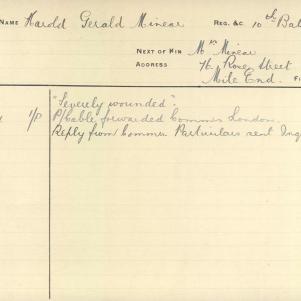 NAME Harold Gerald Minear REG. &C. 10th Bat
NEXT OF KIN Mrs Minear
ADDRESS 76 Rose Street
Mile End. F
1/P "Severely wounded"
P/Cable forwarded Commr London.
Reply from Commr Particulars sent Inq